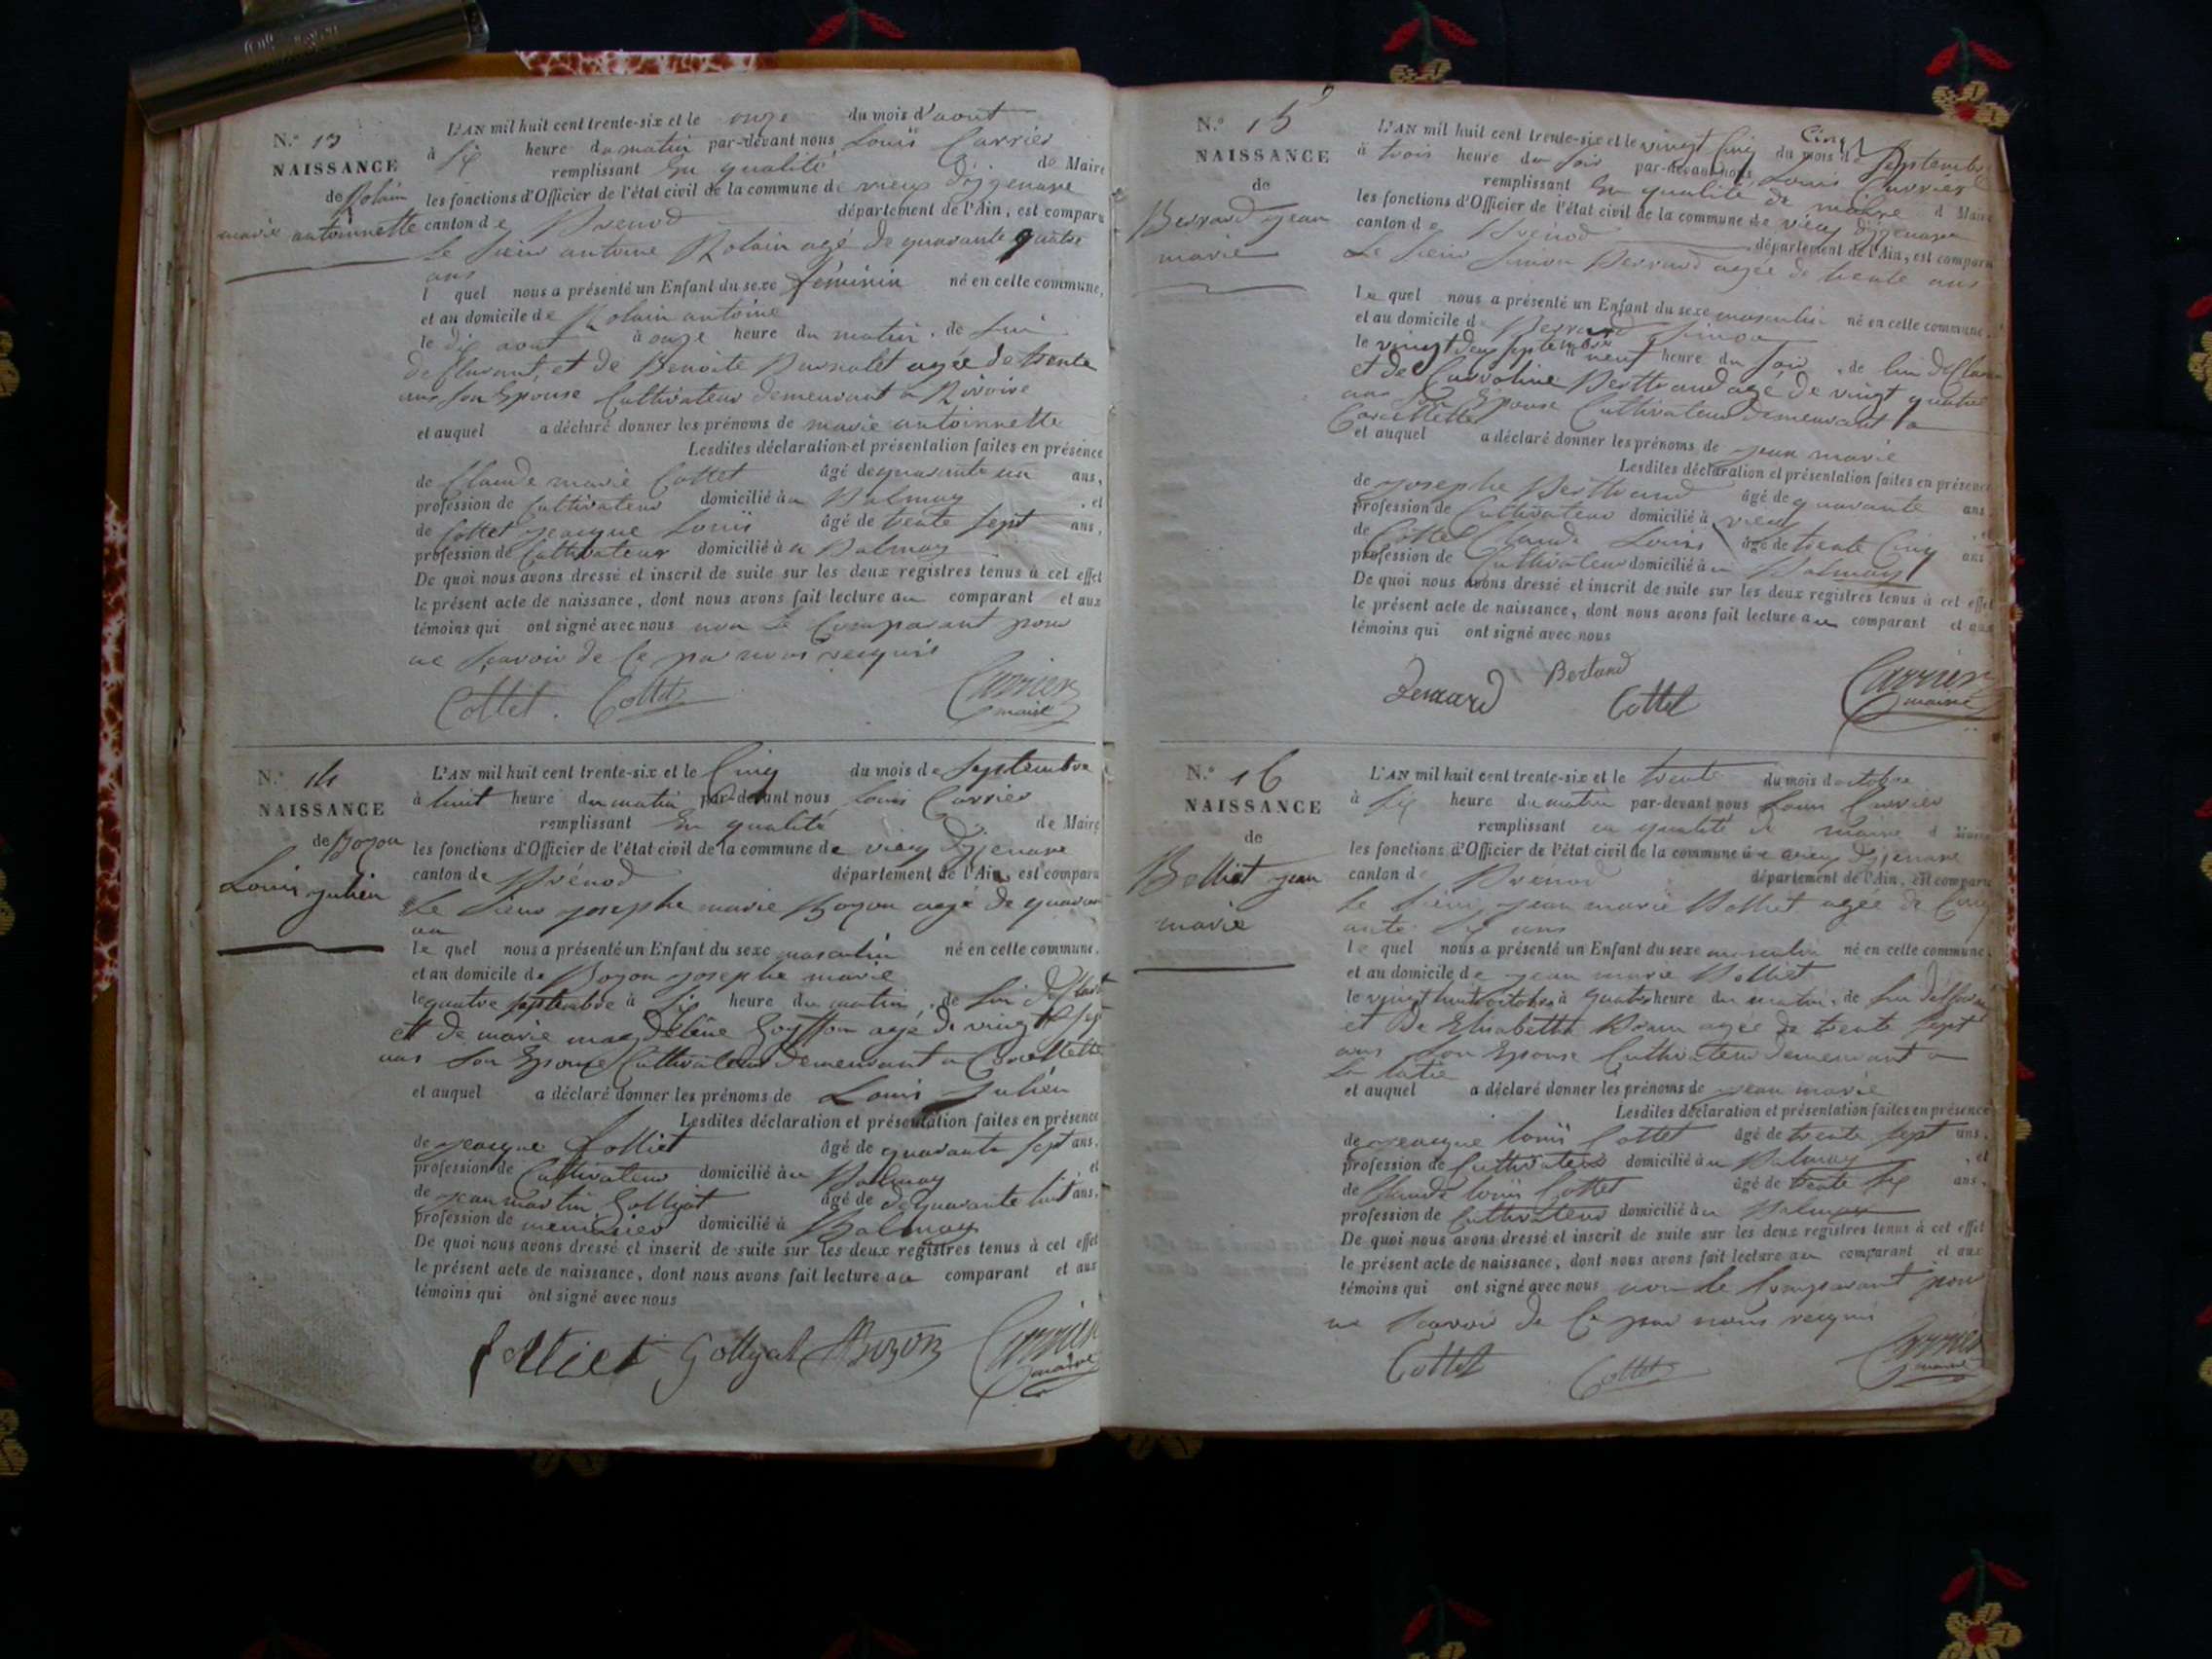 N.° 13
NAISSANCE
de Rolain
marie antoinnette
L'AN mil huit cent trente-six et le onze du mois d'aout
à six heure du matin par-devant nous Louis Carrier
remplissant En qualité de Maire
les fonctions d'Officier de l'état civil de la commune de vieux d'izenave
canton de Brenod département de l'Ain, est comparu
Le sieur antoine Rolain agé de quarante quatre
ans
l quel nous a présenté un Enfant du sexe féminin né en cette commune,
et au domicile de Rolain antoine
le dix aout à onze heure du matin, de lui
desclarant, et de Benoite agée de trente
ans son Epouse Cultivateur demeurant a
et auquel a déclaré donner les prénoms de marie antoinnette
Lesdites déclaration et présentation faites en présence
de Claude marie Cottet âgé de quarante un ans,
profession de Cultivateur domicilié à u Balmay , et
de Cottet jeacque Louis âgé de trente sept ans,
profession de Cultivateur domicilié à u Balmay
De quoi nous avons dressé et inscrit de suite sur les deux registres tenus à cet effet
le présent acte de naissance, dont nous avons fait lecture au comparant et aux
témoins qui ont signé avec nous non Le Comparant pour
ne scavoir de Ce par nous requis
Cottet. Cottet Carrier
maire
N.° 14
NAISSANCE
de Bozon
Louis Julien
L'AN mil huit cent trente-six et le Cinq du mois de Septembre
à huit heure du matin par-devant nous Louis Carrier
remplissant En qualité de Maire
les fonctions d'Officier de l'état civil de la commune de vieux d'izenave
canton de Brénod département de l'Ain, est comparu
Le sieur josephe marie Bozon agé de quarante
an
le quel nous a présenté un Enfant du sexe masculin né en cette commune.
et au domicile de Bozon josephe marie
le quatre septembre à six heure du matin, de lui desclart
et de marie magdeléne agé de vingt sept
ans son Epouse Cultivateur demeurant a Corcellette
et auquel a déclaré donner les prénoms de Louis Julien
Lesdites déclaration et présentation faites en présence
de jeacque Folliet âgé de quarante sept ans,
profession de Cultivateur domicilié à u Balmay et
de jean martin Gollyat âgé de de quarante huit ans,
profession de menuisier domicilié à Balmay
De quoi nous avons dressé et inscrit de suite sur les deux registres tenus à cet effet
le présent acte de naissance, dont nous avons fait lecture au comparant et aux
témoins qui ont signé avec nous
folliet Gollyat Bozon Carrier
maire
N.° 15
NAISSANCE
de
Berrard jean
marie
Cinq
L'AN mil huit cent trente-six et le vingt Cinq du mois de Septembre
à trois heure du soir par-devant nous Louis Carrier
remplissant En qualité de maire d Maire
les fonctions d'Officier de l'état civil de la commune de vieux d'izenave
canton de Brénod département de l'Ain, est comparu
Le sieur Simon Berrard agée de trente ans
le quel nous a présenté un Enfant du sexe masculin né en cette commune.
et au domicile d Berrard Simon
le vingt deux septembre neuf heure du soir, de lui desclarant
et de Carroline Berthrand agé de vingt quatre
ans son Epouse Cultivateur demeurant a
Corcellette
et auquel a déclaré donner les prénoms de jean marie
Lesdites déclaration et présentation faites en présence
de josephe Berthrand âgé de quarante ans
profession de Cultivateur domicilié à vieux
de Cottet Claude Louis âgé de trente Cinq ans
profession de Cultivateur domicilié à u Balmay
De quoi nous avons dressé et inscrit de suite sur les deux registres tenus à cet effet
le présent acte de naissance, dont nous avons fait lecture au comparant et aux
témoins qui ont signé avec nous
Bertand
Cottet Carrier
maire
N.° 16
NAISSANCE
de
Bolliet jean
marie
L'AN mil huit cent trente-six et le trente du mois d octobre
à six heure du matin par-devant nous Louis Carrier
remplissant en qualité de maire d Maire
les fonctions d'Officier de l'état civil de la commune de vieux d'izenave
canton d Brenod département de l'Ain, est comparu
Le sieur jean marie Bolliet agée de Cinq
ante six ans
le quel nous a présenté un Enfant du sexe masculin né en cette commune,
et au domicile de jean marie Bolliet
le vingt huit octobre à quatre heure du matin, de lui
et De Elisabetht agée de trente sept
ans son Epouse Cultivateur demeurant a
et auquel a déclaré donner les prénoms de jean marie
Lesdites déclaration et présentation faites en présence
de jeacque louis Cottet âgé de trente sept ans.
profession de Cultivateur domicilié à u Balmay , et
de Claude louis Cottet âgé de trente six ans.
profession de Cultivateur domicilié à u Balmay
De quoi nous avons dressé et inscrit de suite sur les deux registres tenus à cet effet
le présent acte de naissance, dont nous avons fait lecture au comparant et aux
témoins qui ont signé avec nous non le Comparant pour
ne scavoir de Ce par nous requis
Cottet Cottet Carrier
maire